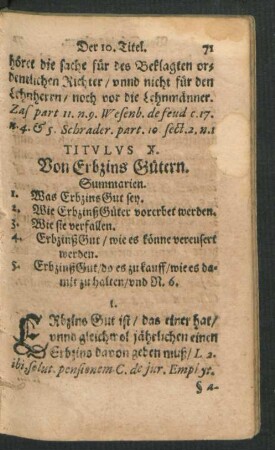 Der 10. Titel. 71
höret die sache für des Beklagten or-
dentlichen Richter / vnnd nicht für den
Lehnherrn / noch vor die Lehnmänner.
Zas part 11. n. 9. Wesenb. de feud c. 17.
n. 4. & 5. Schrader. part. 10 sect. 2. n. 1
TITVLVS X.
Von Erbzins Gütern.
Summarien.
1. Was Erbzins Gut sey.
2. Wie Erbzinß Güter vererbet werden.
3. Wie sie verfallen.
4. Erbzinß Gut / wie es könne vereusert
werden.
5. Erbzinß Gut / do es zu kauff / wie es da-
mit zu halten / vnd N. 6.
1.
ERbzins Gut ist / das einer hat /
vnnd gleichwol jährlichen einen
Erbzins davon geben muß / l. 2.
ibi, solut. pensionem C. de jur. Emphyt.
§ a-